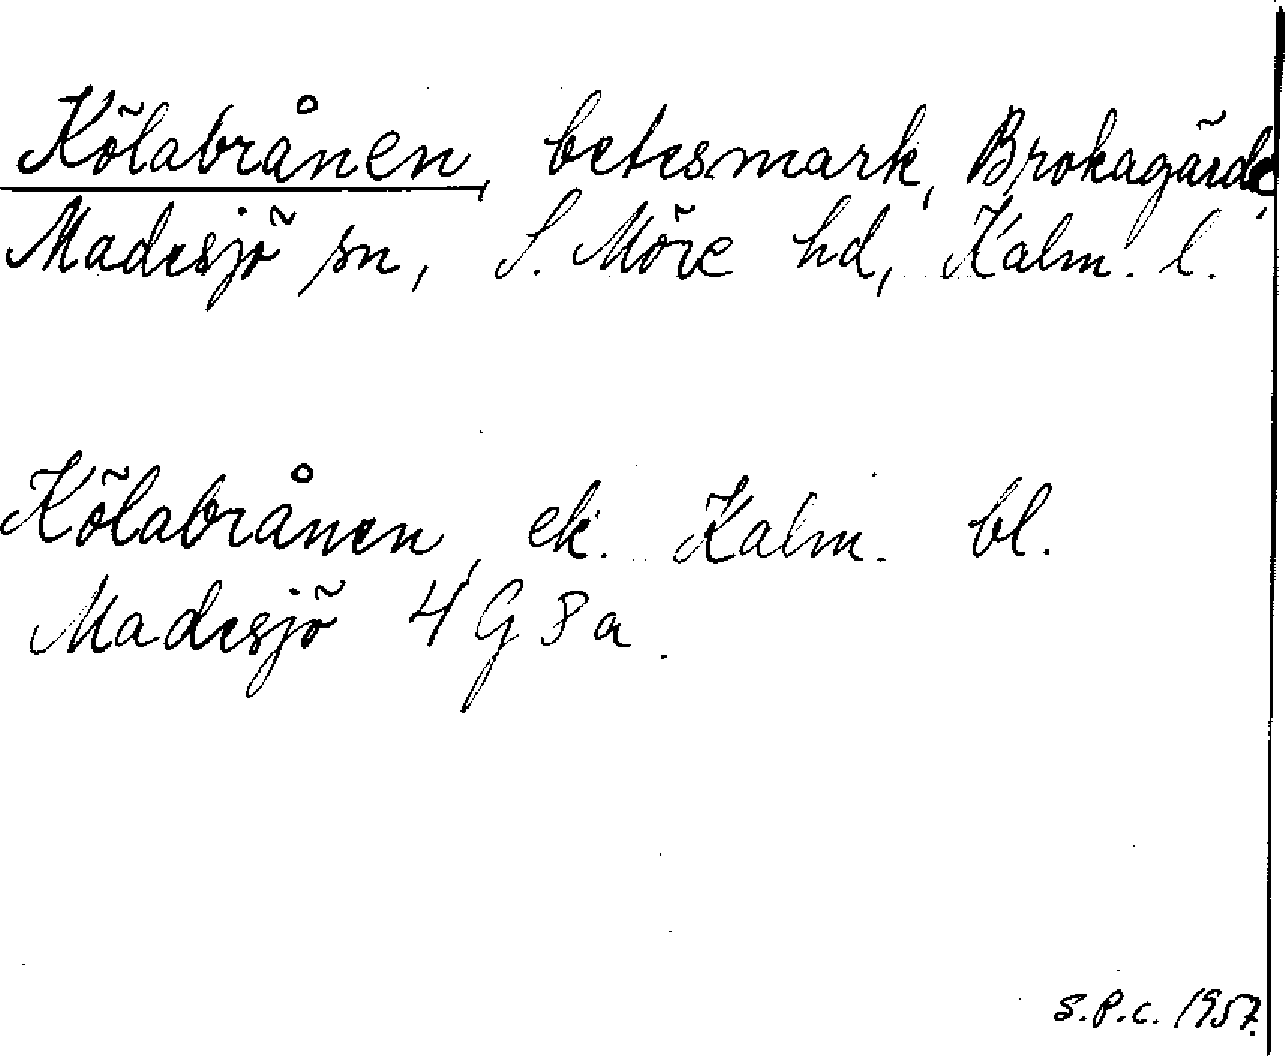 Kölabrånen, betesmark, Brokagärde,
Madesjö sn, S. Möre hd, Kalm. l.
Kölabrånen, ek. Kalm. bl.
Madesjö 4G 8a.
S.P.C. 1957.